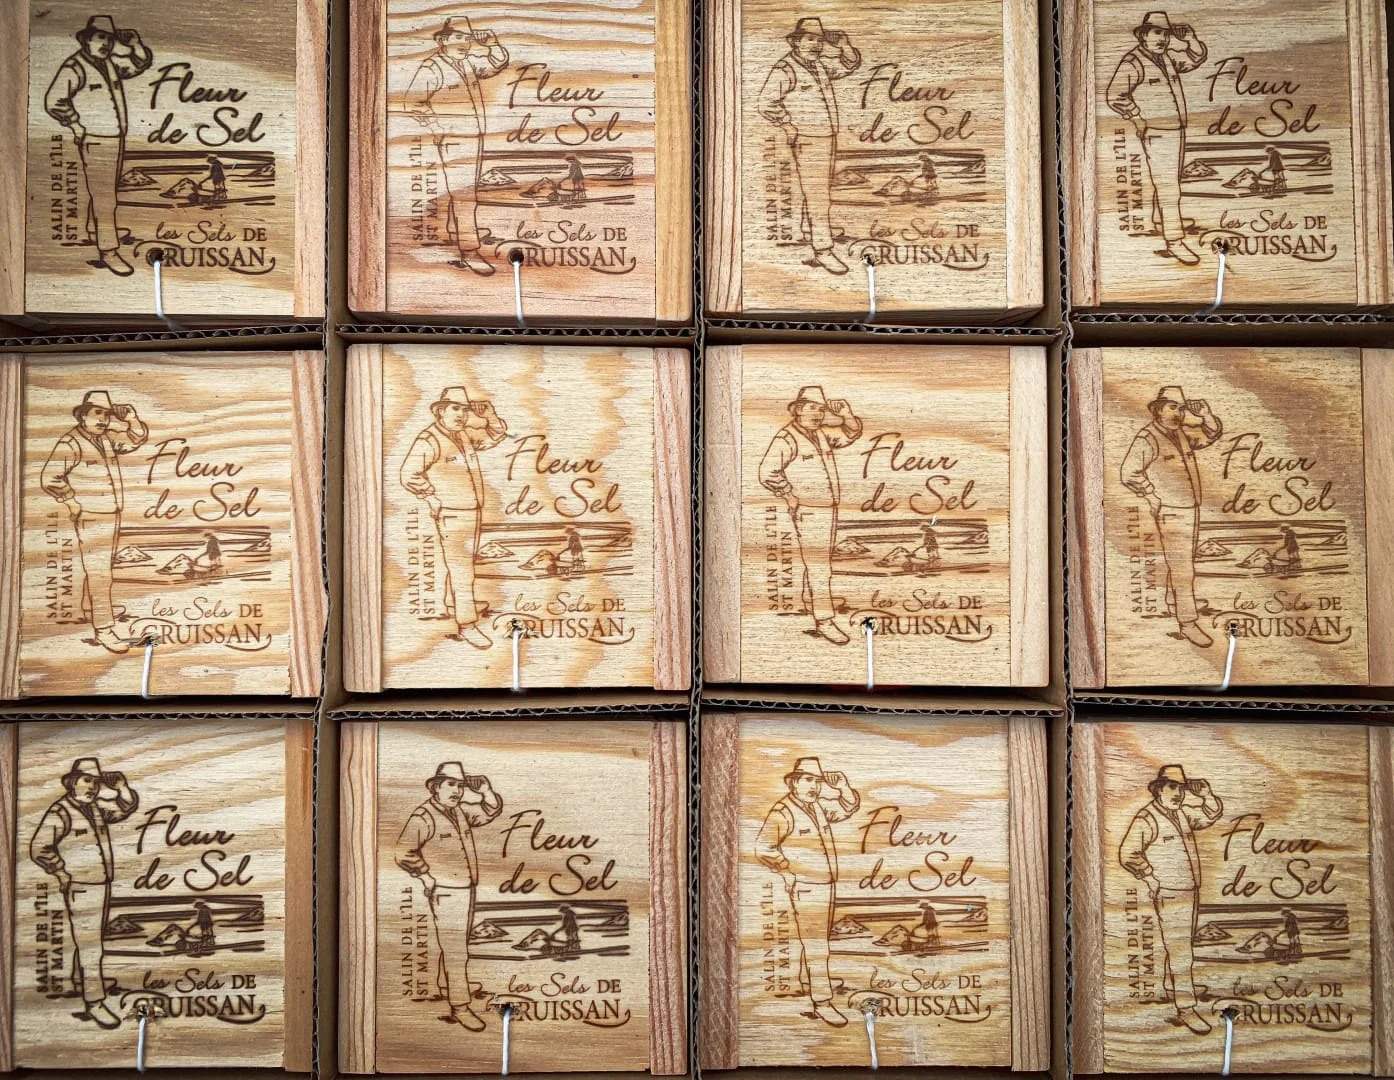 Fleur
de Sel
SALIN DE L'ÎLE
ST MARTIN
les Sels DE
GRUISSAN
Fleur
de Sel
SALIN DE L'ÎLE
ST MARTIN
les Sels DE
GRUISSAN
Fleur
de Sel
SALIN DE L'ÎLE
ST MARTIN
les Sels DE
GRUISSAN
Fleur
de Sel
SALIN DE L'ÎLE
ST MARTIN
les Sels DE
GRUISSAN
Fleur
de Sel
SALIN DE L'ÎLE
ST MARTIN
les Sels DE
GRUISSAN
Fleur
de Sel
SALIN DE L'ÎLE
ST MARTIN
les Sels DE
GRUISSAN
Fleur
de Sel
SALIN DE L'ÎLE
ST MARTIN
les Sels DE
GRUISSAN
Fleur
de Sel
SALIN DE L'ÎLE
ST MARTIN
les Sels DE
GRUISSAN
Fleur
de Sel
SALIN DE L'ÎLE
ST MARTIN
les Sels DE
GRUISSAN
Fleur
de Sel
SALIN DE L'ÎLE
ST MARTIN
les Sels DE
GRUISSAN
Fleur
de Sel
SALIN DE L'ÎLE
ST MARTIN
les Sels DE
GRUISSAN
Fleur
de Sel
SALIN DE L'ÎLE
ST MARTIN
les Sels DE
GRUISSAN